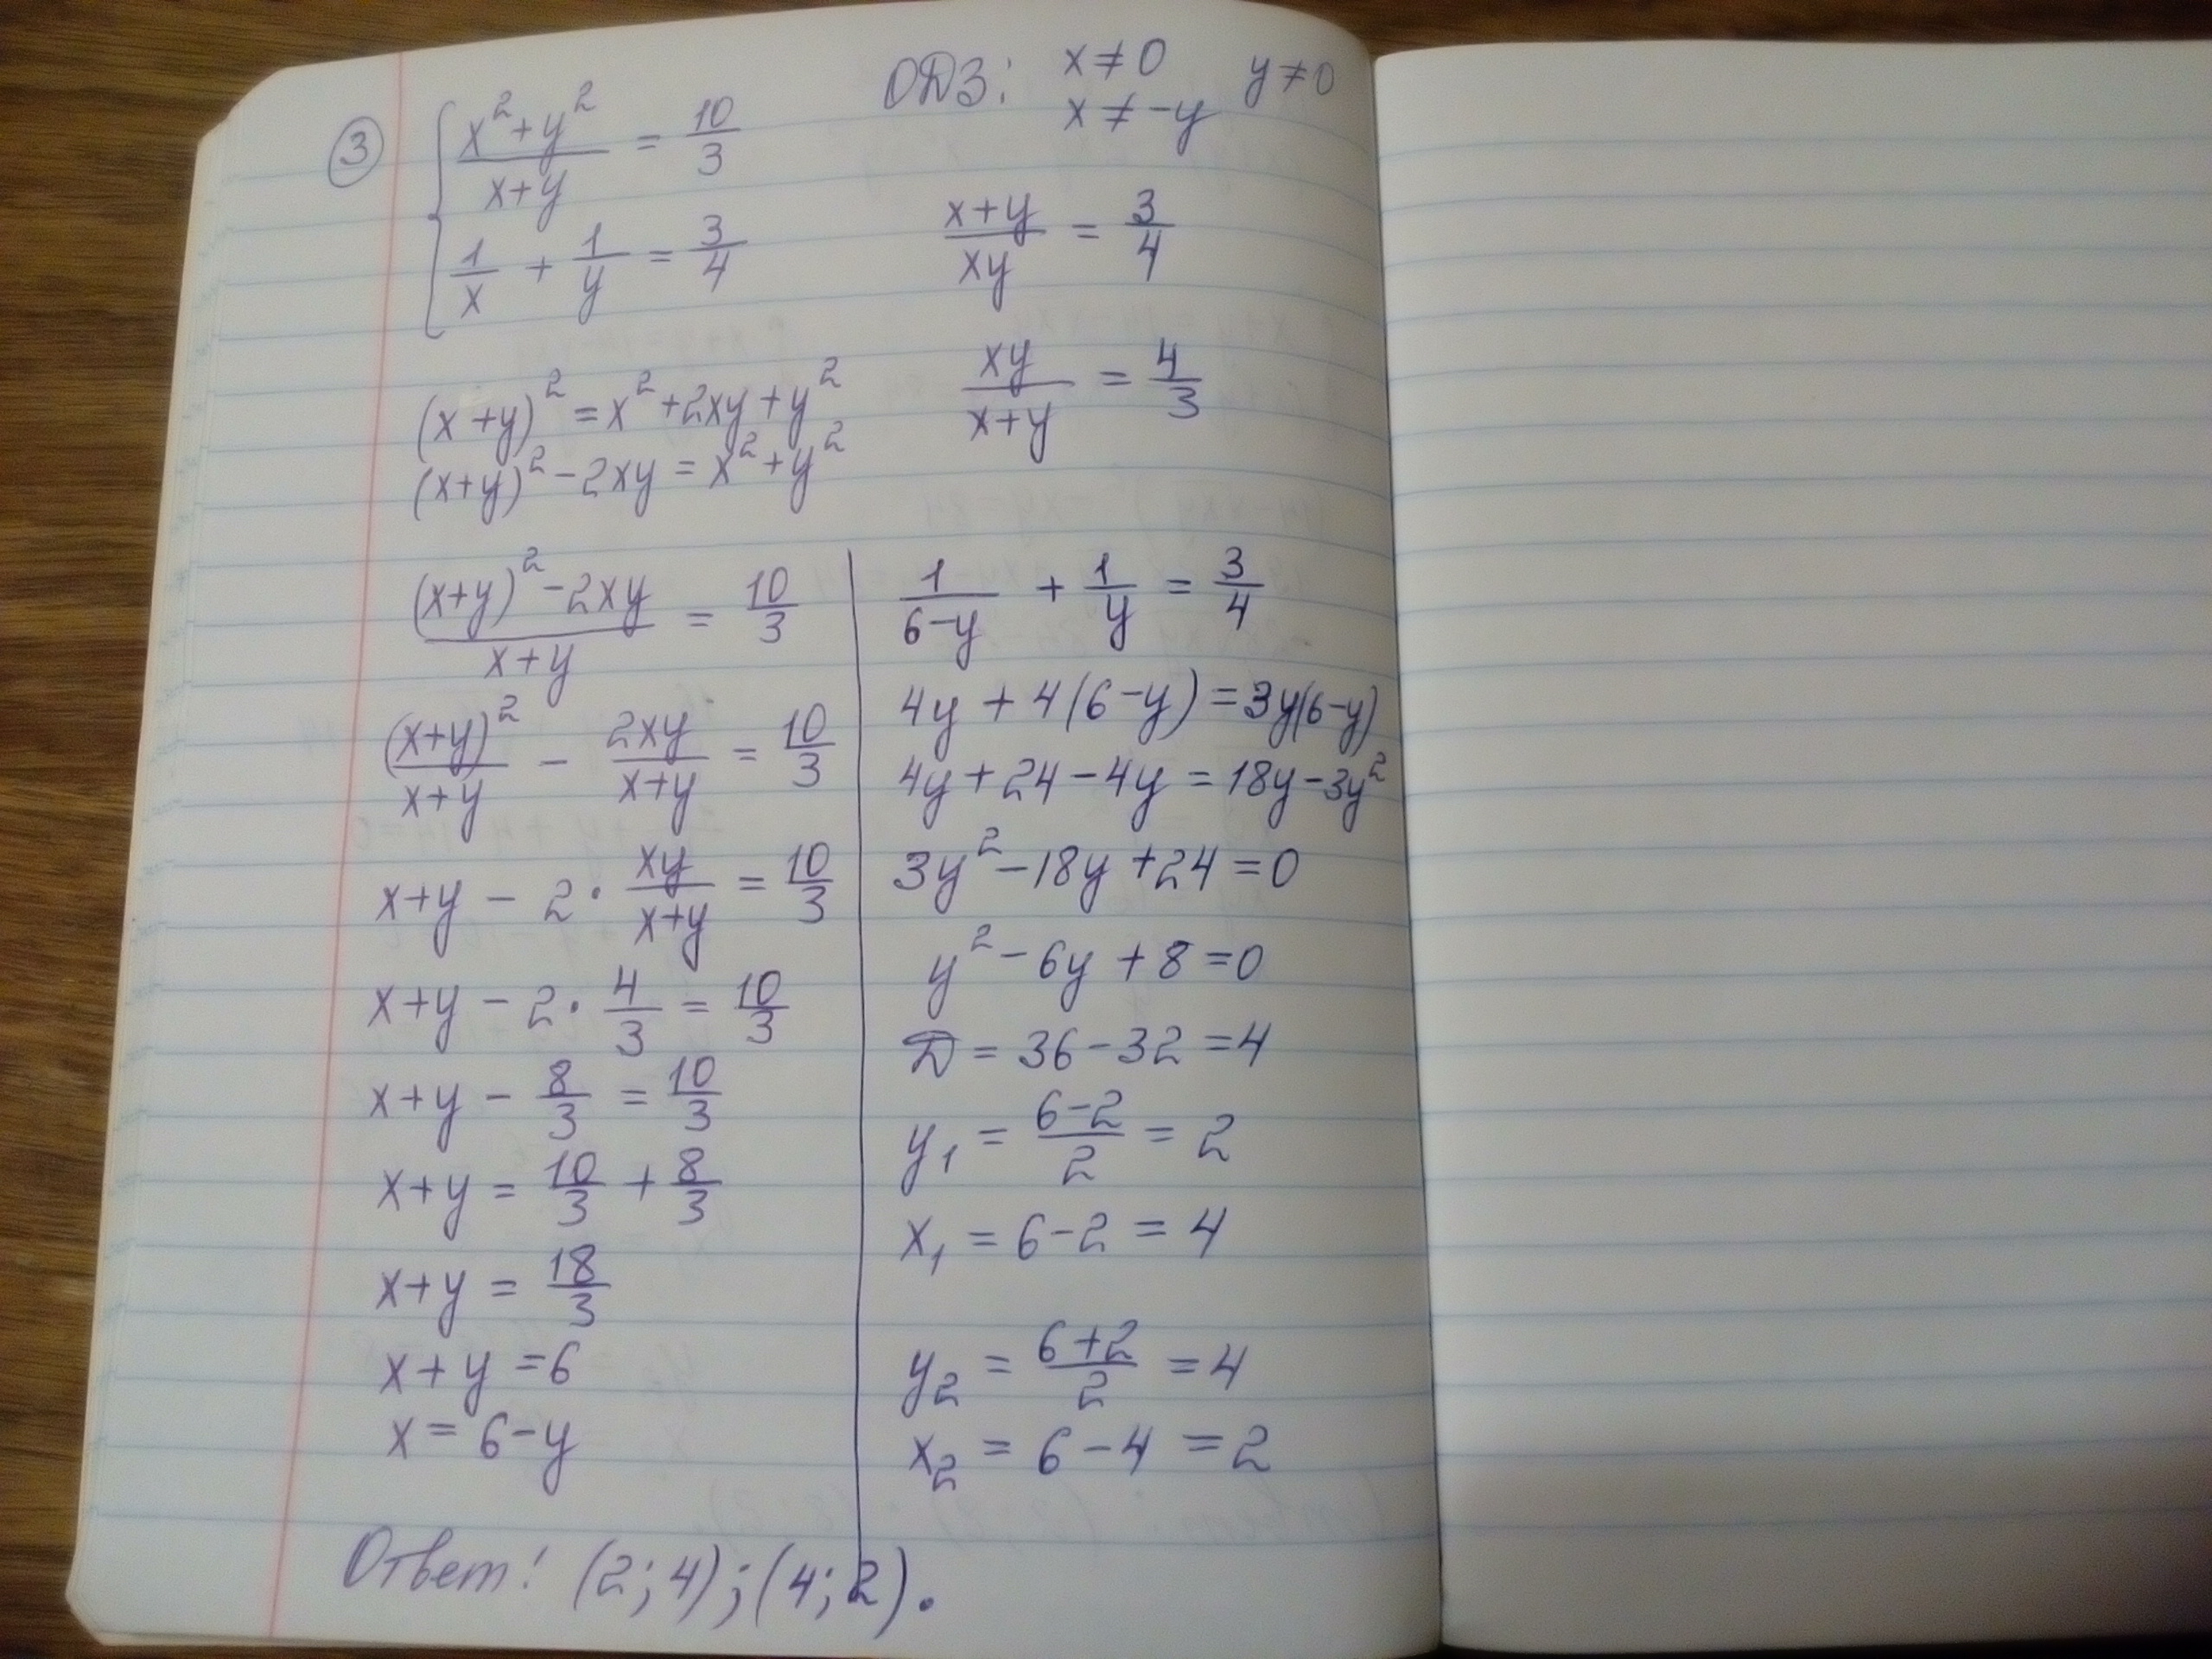 ③ { (x²+y²)/(x+y) = 10/3
1/x + 1/y = 3/4
ОДЗ: x≠0 y≠0
x≠-y
(x+y)/(xy) = 3/4
(xy)/(x+y) = 4/3
(x+y)² = x²+2xy+y²
(x+y)²-2xy = x²+y²
((x+y)²-2xy)/(x+y) = 10/3
(x+y)²/(x+y) - 2xy/(x+y) = 10/3
x+y - 2·(xy)/(x+y) = 10/3
x+y - 2·4/3 = 10/3
x+y - 8/3 = 10/3
x+y = 10/3 + 8/3
x+y = 18/3
x+y = 6
x = 6-y
1/(6-y) + 1/y = 3/4
4y + 4(6-y) = 3y(6-y)
4y+24-4y = 18y-3y²
3y²-18y+24=0
y²-6y+8=0
D = 36-32 = 4
y₁ = (6-2)/2 = 2
x₁ = 6-2 = 4
y₂ = (6+2)/2 = 4
x₂ = 6-4 = 2
Ответ: (2;4);(4;2).